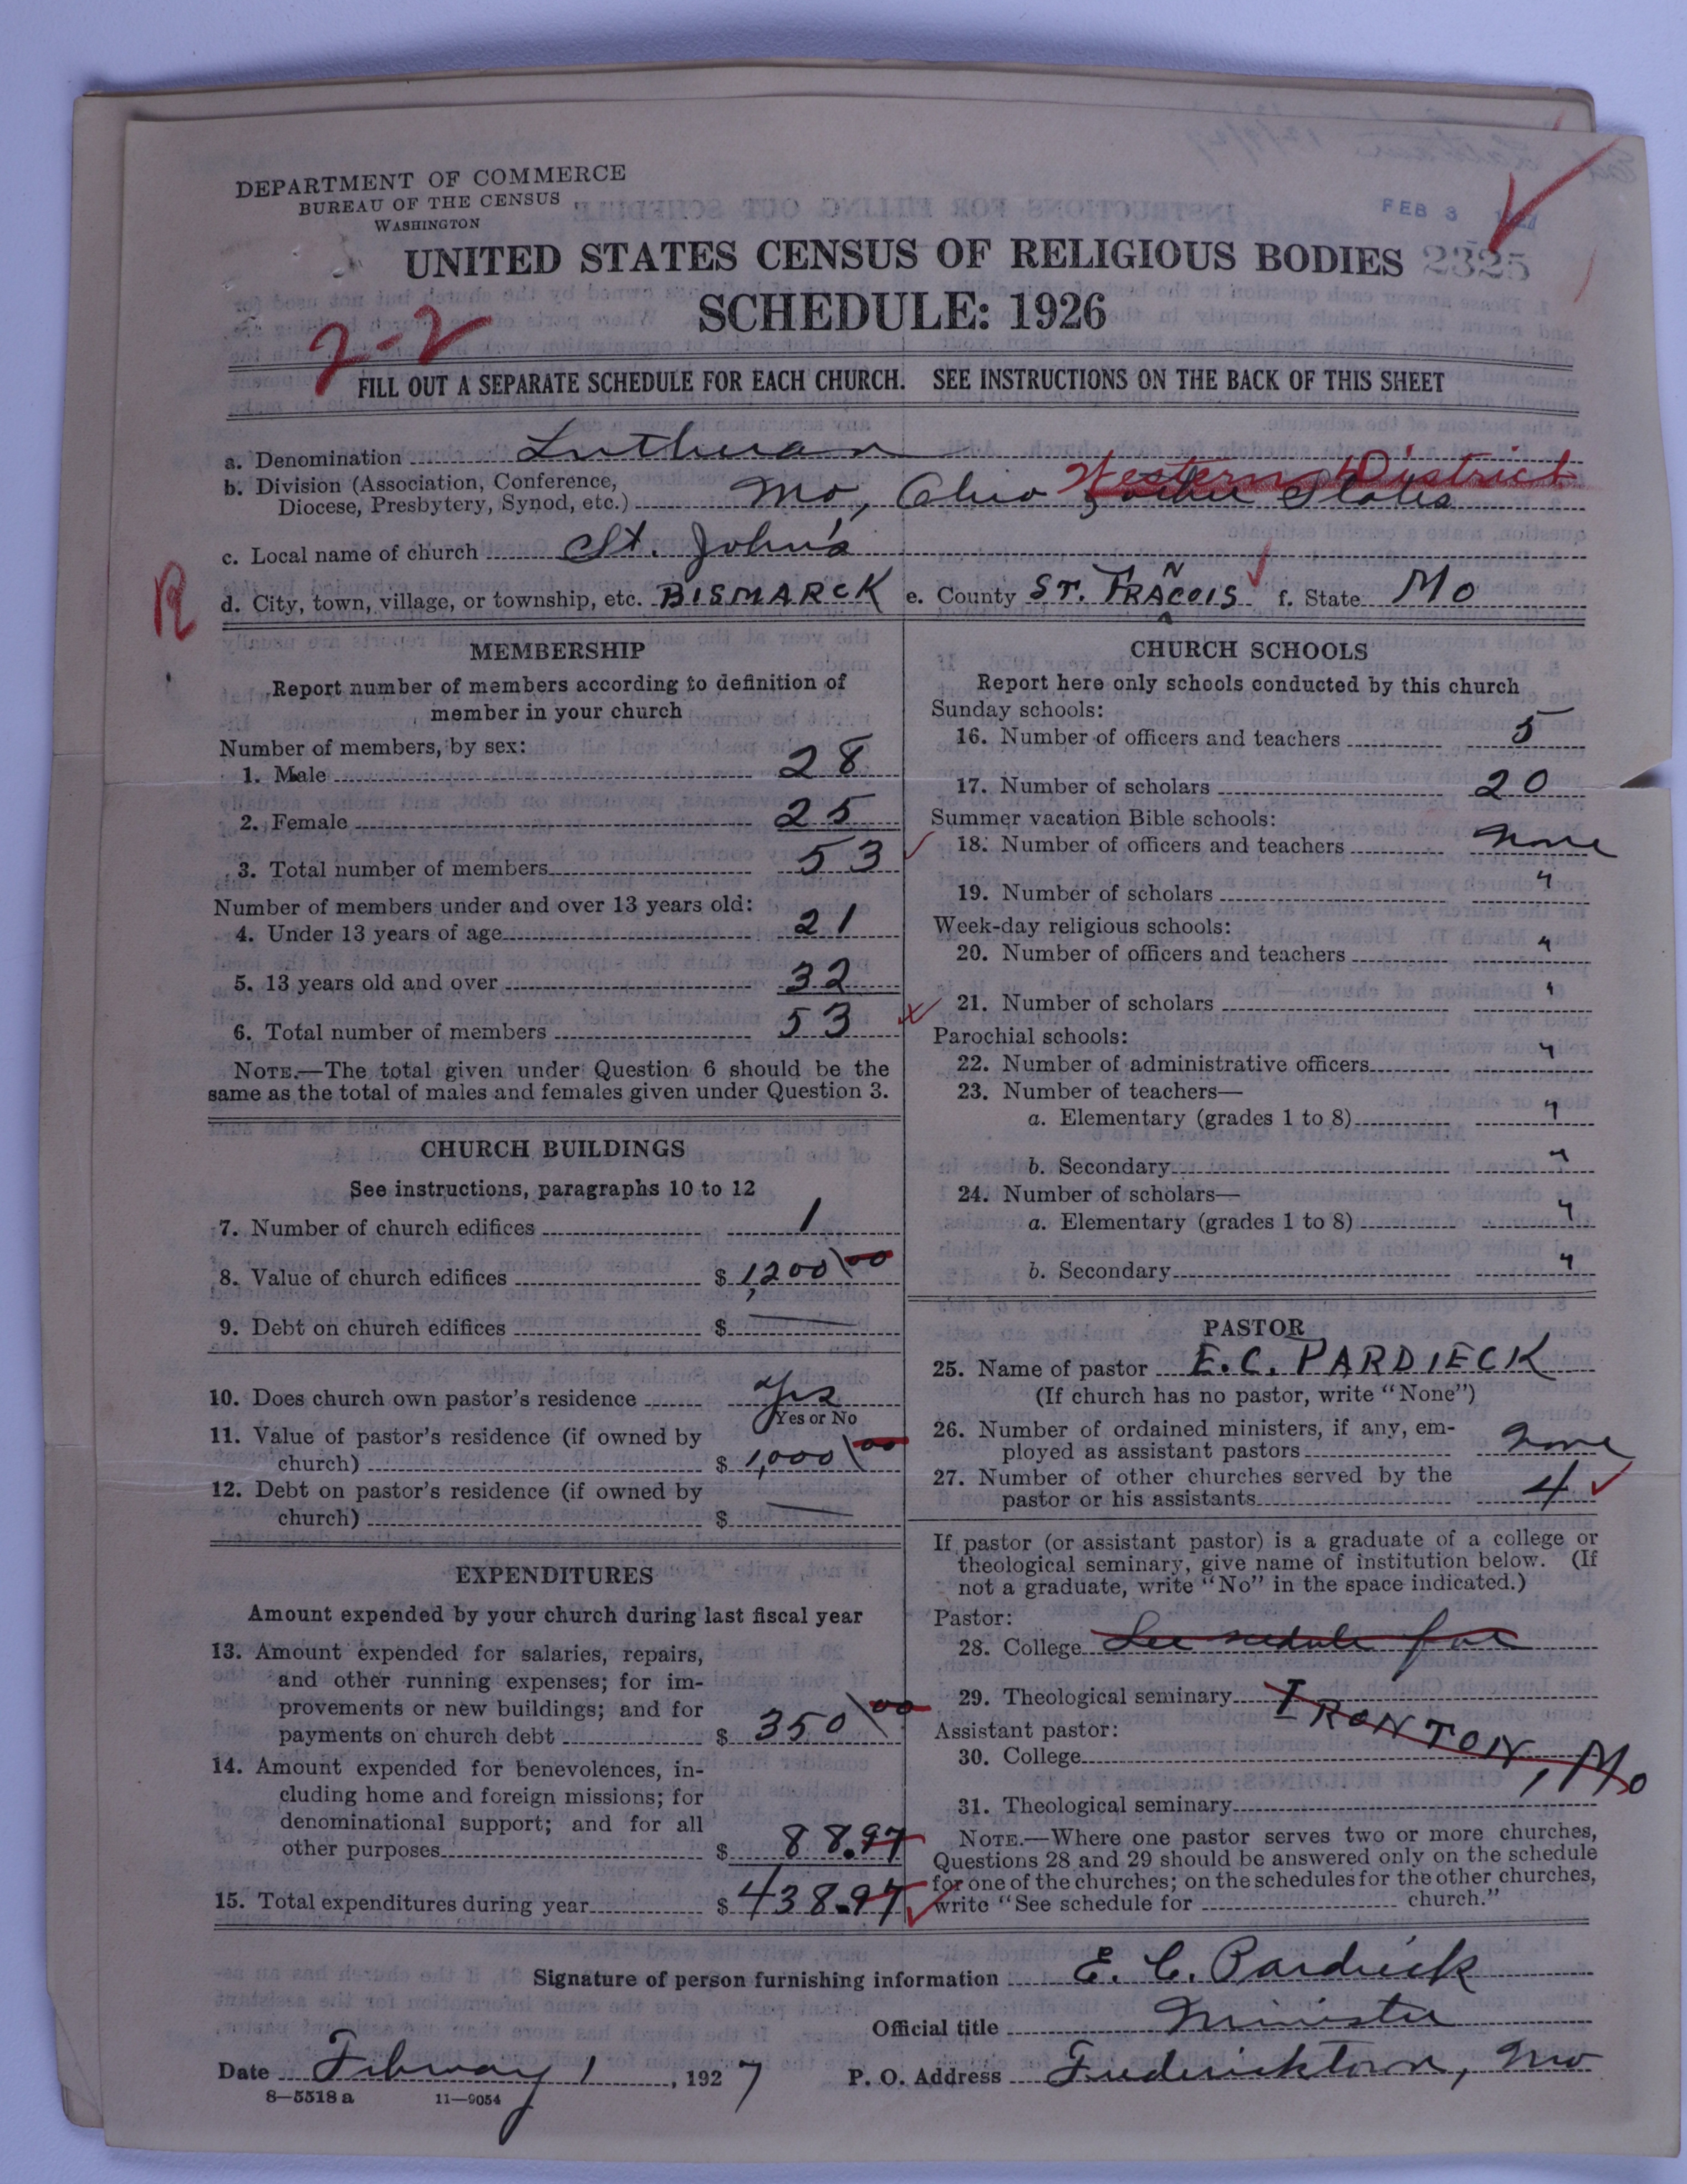 DEPARTMENT OF COMMERCE
BUREAU OF THE CENSUS
WASHINGTON
FEB 3
2325
UNITED STATES CENSUS OF RELIGIOUS BODIES
SCHEDULE: 1926
2-2
FILL OUT A SEPARATE SCHEDULE FOR EACH CHURCH. SEE INSTRUCTIONS ON THE BACK OF THIS SHEET
a. Denomination Lutheran
Western District
b. Division (Association, Conference, Diocese, Presbytery, Synod, etc.) Mo, Ohio & other States
c. Local name of church St. John's
R
d. City, town, village, or township, etc. BISMARCK e. County ST. FRANCOIS f. State MO
MEMBERSHIP
Report number of members according to definition of
member in your church
Number of members, by sex:
1. Male 28
2. Female 25
3. Total number of members 53
Number of members under and over 13 years old:
4. Under 13 years of age 21
5. 13 years old and over 32
6. Total number of members 53
NOTE.—The total given under Question 6 should be the
same as the total of males and females given under Question 3.
CHURCH BUILDINGS
See instructions, paragraphs 10 to 12
7. Number of church edifices 1
8. Value of church edifices $ 1,200 00
9. Debt on church edifices $ —
10. Does church own pastor's residence Yes
Yes or No
11. Value of pastor's residence (if owned by
church) $ 1,000 00
12. Debt on pastor's residence (if owned by
church) $ —
EXPENDITURES
Amount expended by your church during last fiscal year
13. Amount expended for salaries, repairs,
and other running expenses; for im-
provements or new buildings; and for
payments on church debt $ 350 00
14. Amount expended for benevolences, in-
cluding home and foreign missions; for
denominational support; and for all
other purposes $ 88.97
15. Total expenditures during year $ 438.97
CHURCH SCHOOLS
Report here only schools conducted by this church
Sunday schools:
16. Number of officers and teachers 5
17. Number of scholars 20
Summer vacation Bible schools:
18. Number of officers and teachers None
19. Number of scholars "
Week-day religious schools:
20. Number of officers and teachers "
21. Number of scholars "
Parochial schools:
22. Number of administrative officers "
23. Number of teachers—
a. Elementary (grades 1 to 8) "
b. Secondary "
24. Number of scholars—
a. Elementary (grades 1 to 8) "
b. Secondary "
PASTOR
25. Name of pastor E. C. PARDIECK
(If church has no pastor, write "None")
26. Number of ordained ministers, if any, em-
ployed as assistant pastors None
27. Number of other churches served by the
pastor or his assistants 4
If pastor (or assistant pastor) is a graduate of a college or
theological seminary, give name of institution below. (If
not a graduate, write "No" in the space indicated.)
Pastor:
28. College See for
29. Theological seminary IRONTON, Mo
Assistant pastor:
30. College
31. Theological seminary
NOTE.—Where one pastor serves two or more churches,
Questions 28 and 29 should be answered only on the schedule
for one of the churches; on the schedules for the other churches,
write "See schedule for church."
Signature of person furnishing information E. C. Pardieck
Official title Minister
Date February 1, 1927 P. O. Address Fredericktown, Mo
8—5518 a 11—9054